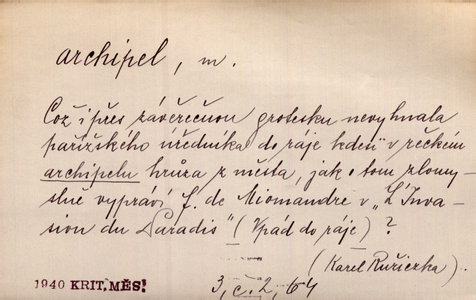 archipel, m.
Což i přes závěrečnou grotesku nevyhnala
pařížského úředníka do ráje kdesi v řeckém
archipelu hrůza z města, jak o tom zlomy-
slně vypráví f. de Miomandre v „L'Inva-
sion du Paradis" (Vpád do ráje) ?
(Karel Růžička).
1940 KRIT. MĚS!
3, č. 2, 64